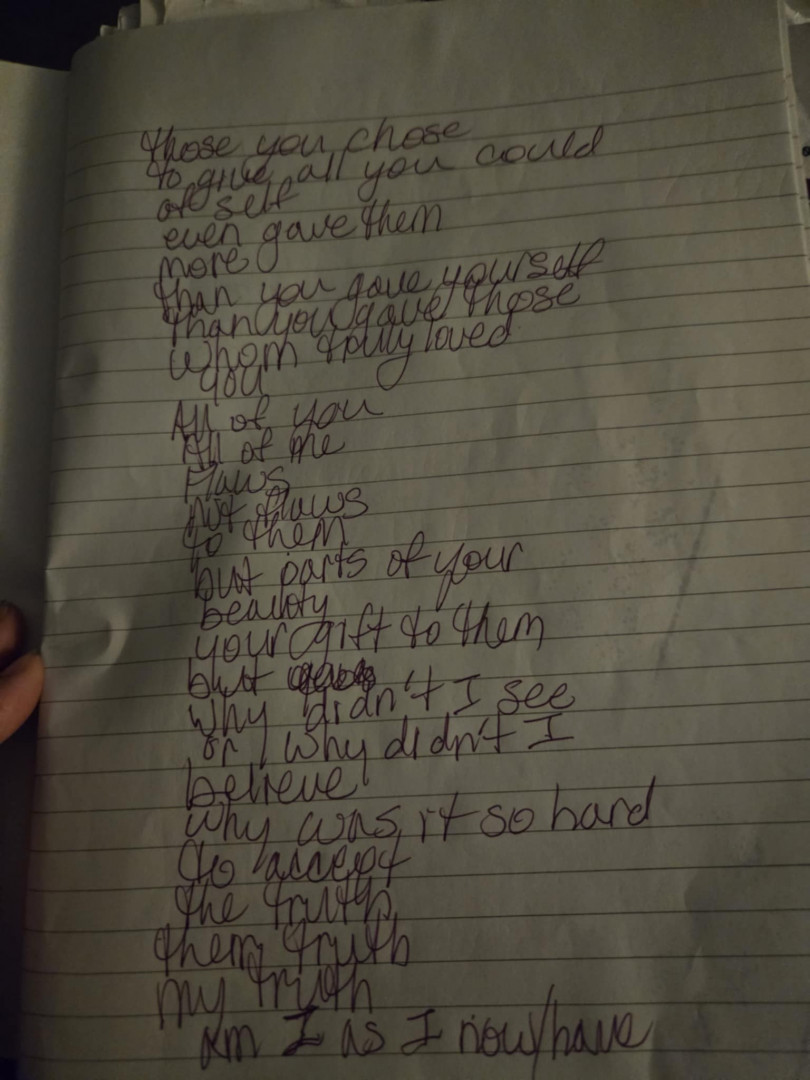 those you chose
to give all you could
of self
even gave them
more
than you gave yourself
than you gave those
whom truly loved
you
All of you
All of me
Flaws
not flaws
to them
but parts of your
beauty
your gift to them
but
why didn't I see
or why didn't I
believe
why was it so hard
to accept
the truth
them truth
my truth
Am I as I now/have